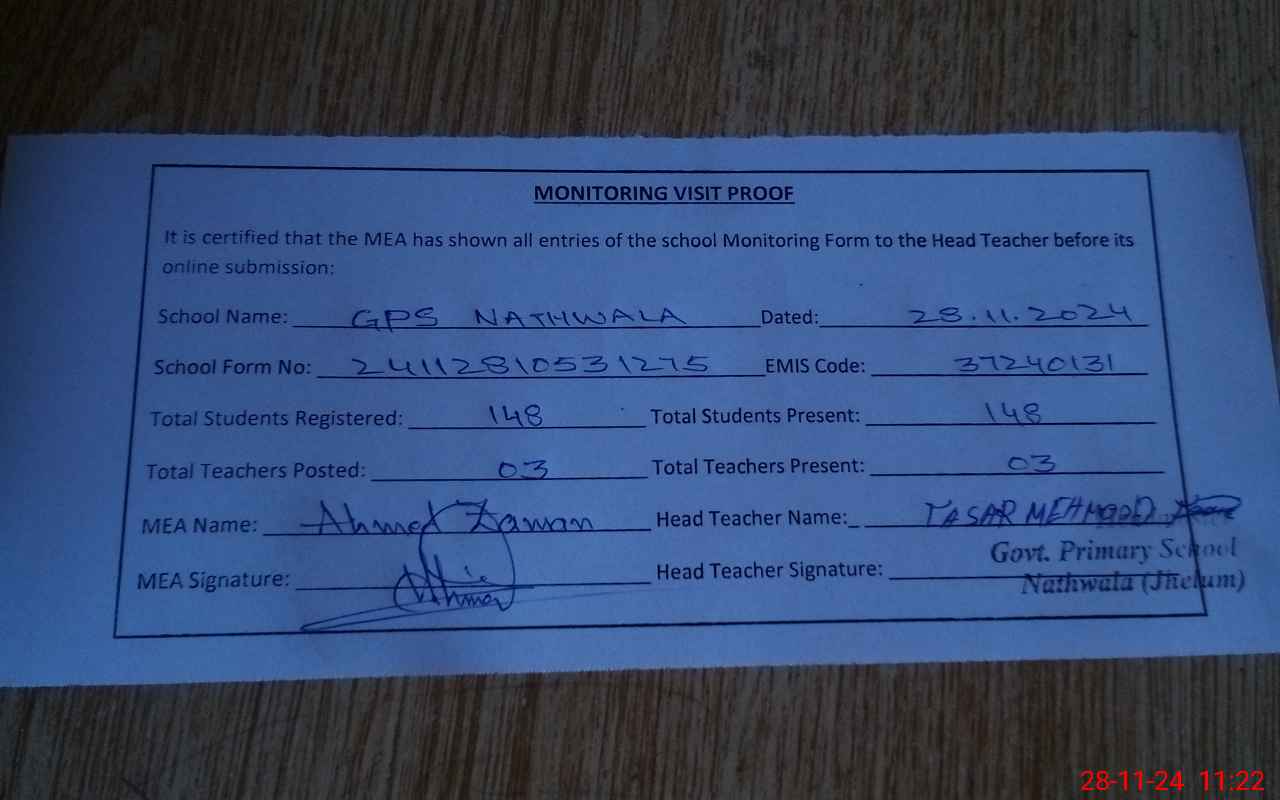 MONITORING VISIT PROOF
It is certified that the MEA has shown all entries of the school Monitoring Form to the Head Teacher before its
online submission:
School Name: GPS NATHWALA Dated: 28.11.2024
School Form No: 24112810531275 EMIS Code: 37240131
Total Students Registered: 148 Total Students Present: 148
Total Teachers Posted: 03 Total Teachers Present: 03
MEA Name: Ahmed Zaman Head Teacher Name:_ YASAR MEHMOOD
Govt. Primary School
MEA Signature: Head Teacher Signature:
Nathwala (Jhelum)
28-11-24 11:22